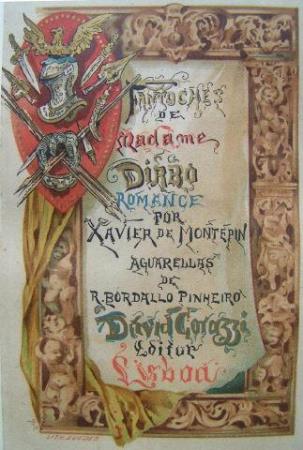 FANTOCHES
DE
Madame
DIABO
ROMANCE
POR
XAVIER DE MONTÉPIN
AGUARELLAS
DE
R. BORDALLO PINHEIRO
David Corazzi
Editor
Lisboa